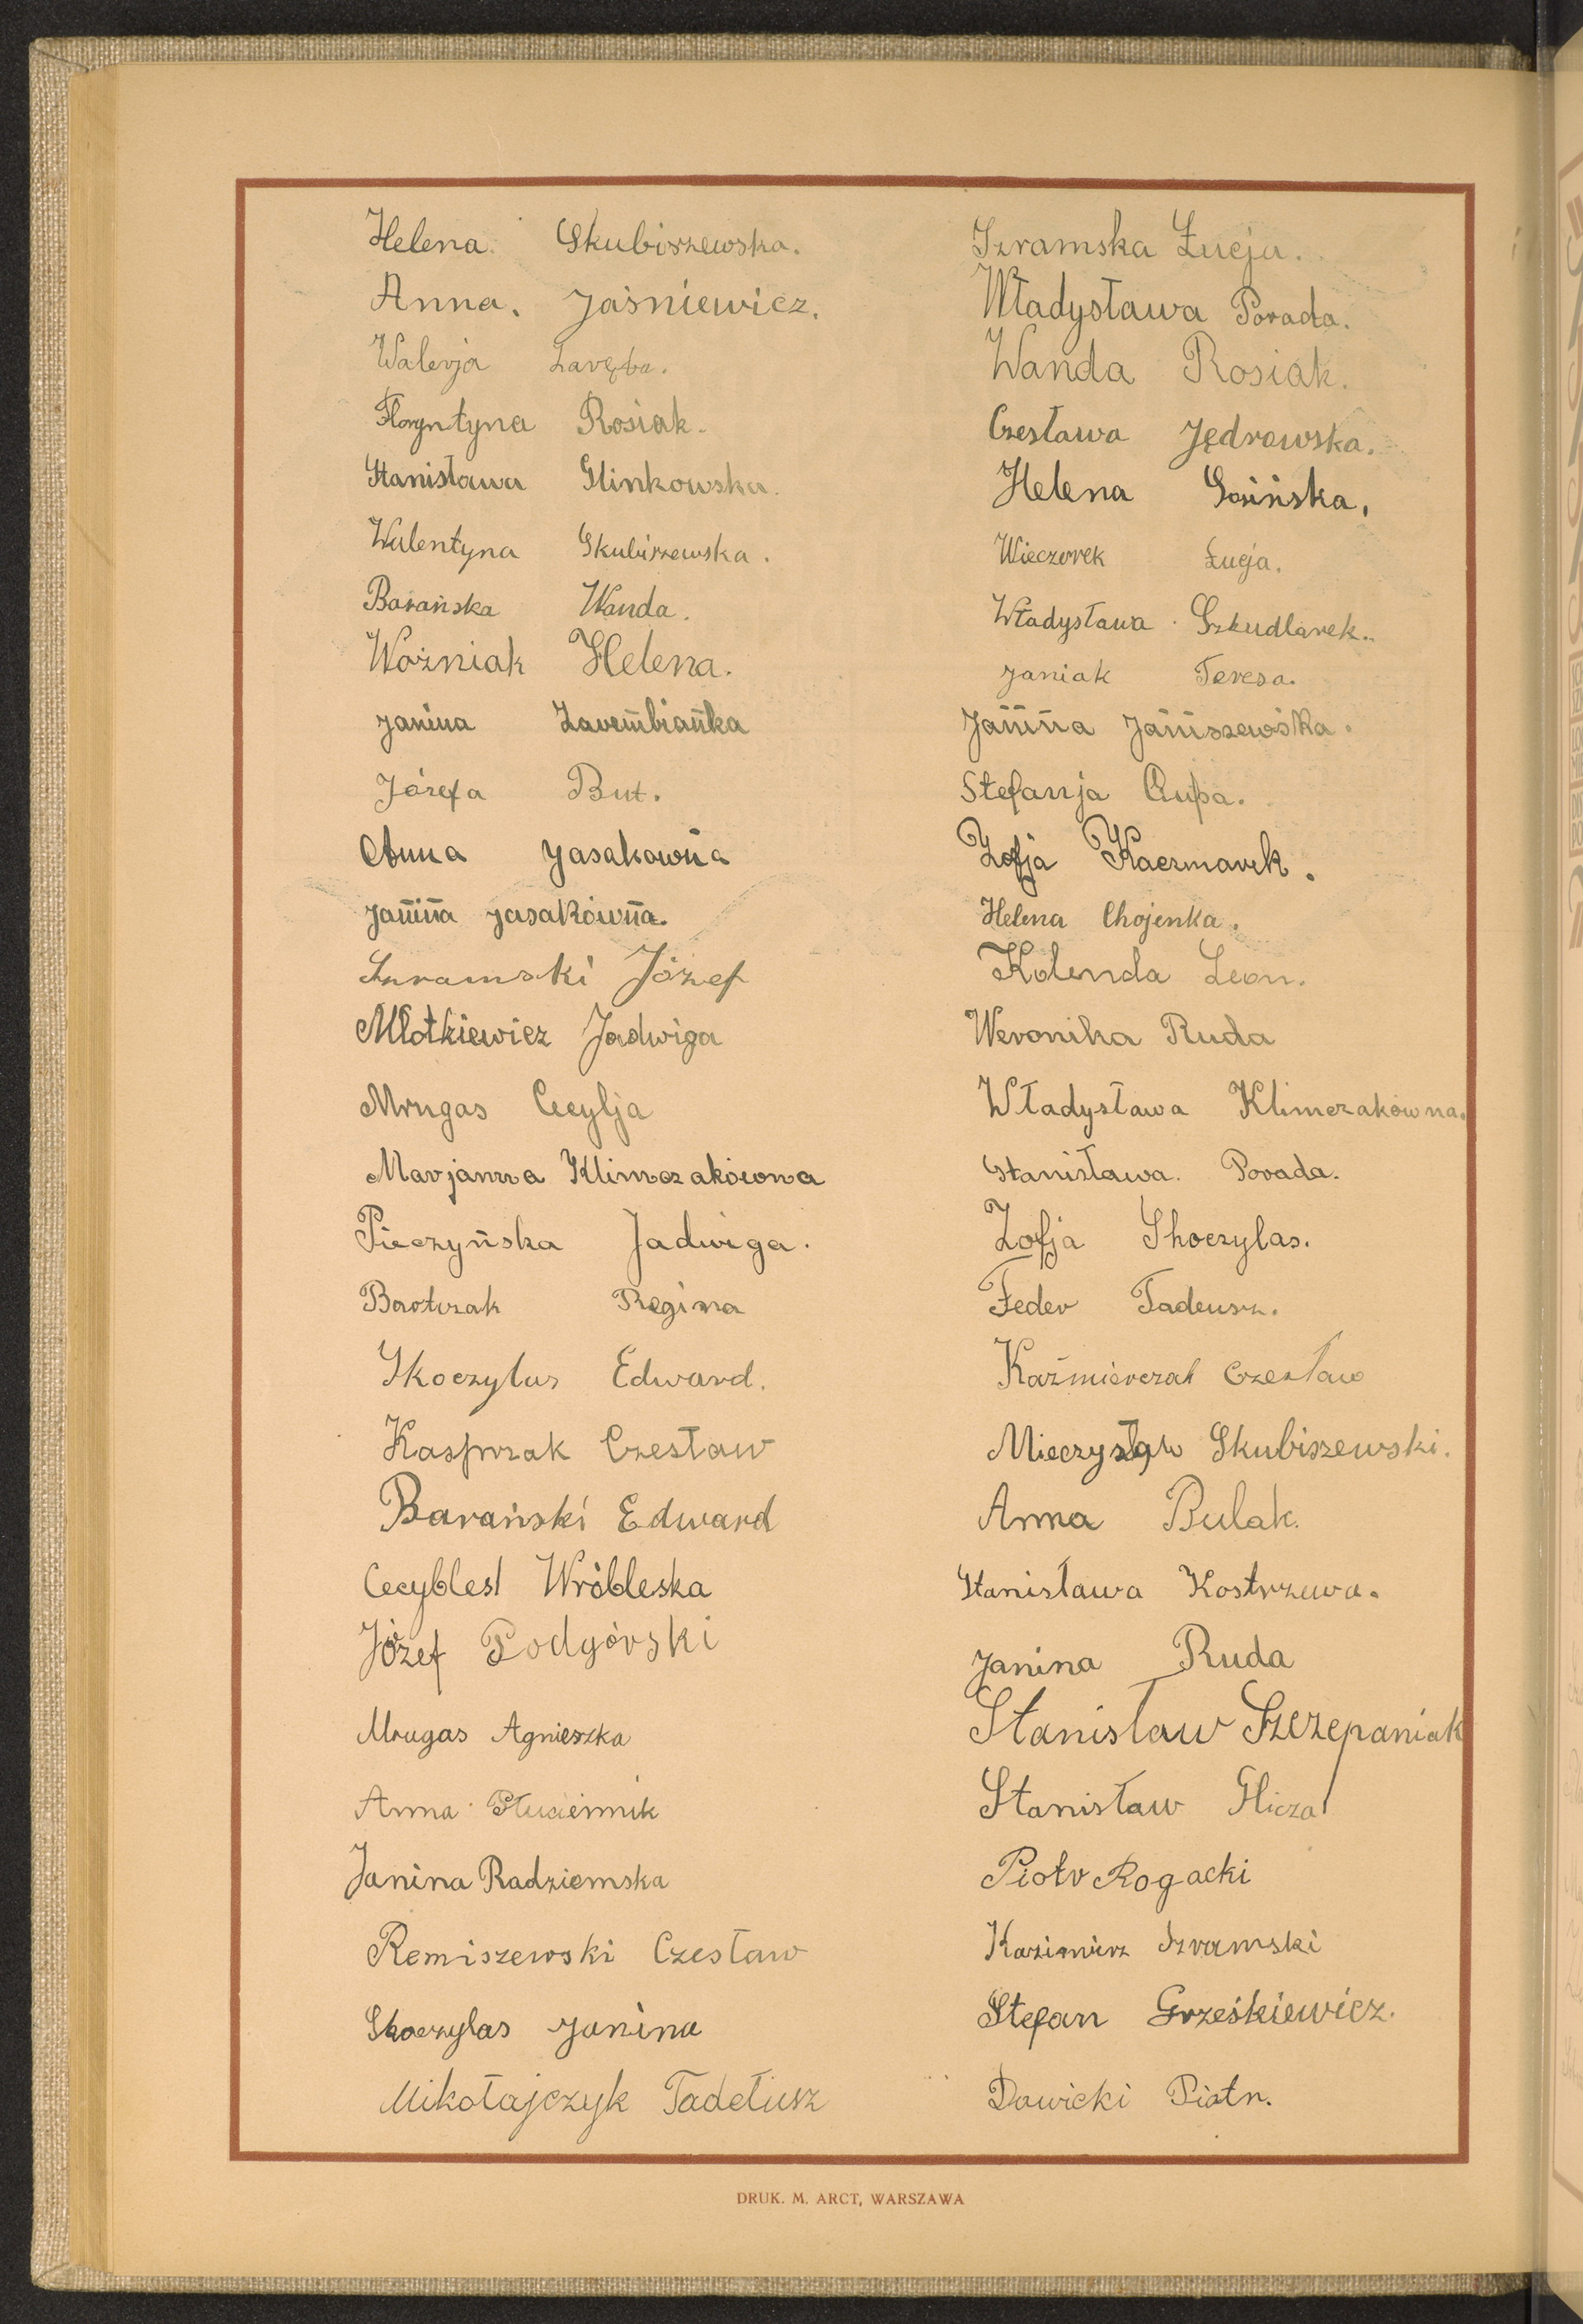 Helena Skubiszewska.
Anna. Jaśniewicz.
Walerja Zaręba.
Floryntyna Rosiak.
Stanisława Glinkowska.
Walentyna Skubiszewska.
Barańska Wanda.
Woźniak Helena.
Janina Zarembianka
Józefa But.
Anna Jasakówna
Janina Jasakówna.
Szramski Józef
Mlotkiewicz Jadwiga
Mrugas Cecylja
Marjanna Klimczakówna
Pieczyńska Jadwiga.
Bartczak Regina
Skoczylas Edward.
Kasprzak Czesław
Barański Edward
Wróbleska
Józef Podgórski
Mrugas Agnieszka
Anna Płuciennik
Janina Radziemska
Remiszewski Czesław
Skoczylas Janina
Mikołajczyk Tadeusz
Szramska Łucja.
Władysława Porada.
Wanda Rosiak.
Czesława Jędrowska.
Helena Gosińska.
Wieczorek Łucja.
Władysława Szkudlarek.
Janiak Teresa.
Janina Janiszewska.
Stefanja Ciupa.
Zofja Kaczmarek.
Helena Chojenka.
Kolenda Leon.
Weronika Ruda
Władysława Klimczakówna.
Stanisława. Porada.
Zofja Skoczylas.
Feder Tadeusz.
Kaźmierczak Czesław
Mieczysław Skubiszewski.
Anna Bulak.
Stanisława Kostrzewa.
Janina Ruda
Stanisław Szczepaniak
Stanisław Glicza
Piotr Rogacki
Kazimierz Szramski
Stefan Grześkiewicz.
Dowicki Piotr.
DRUK. M. ARCT, WARSZAWA